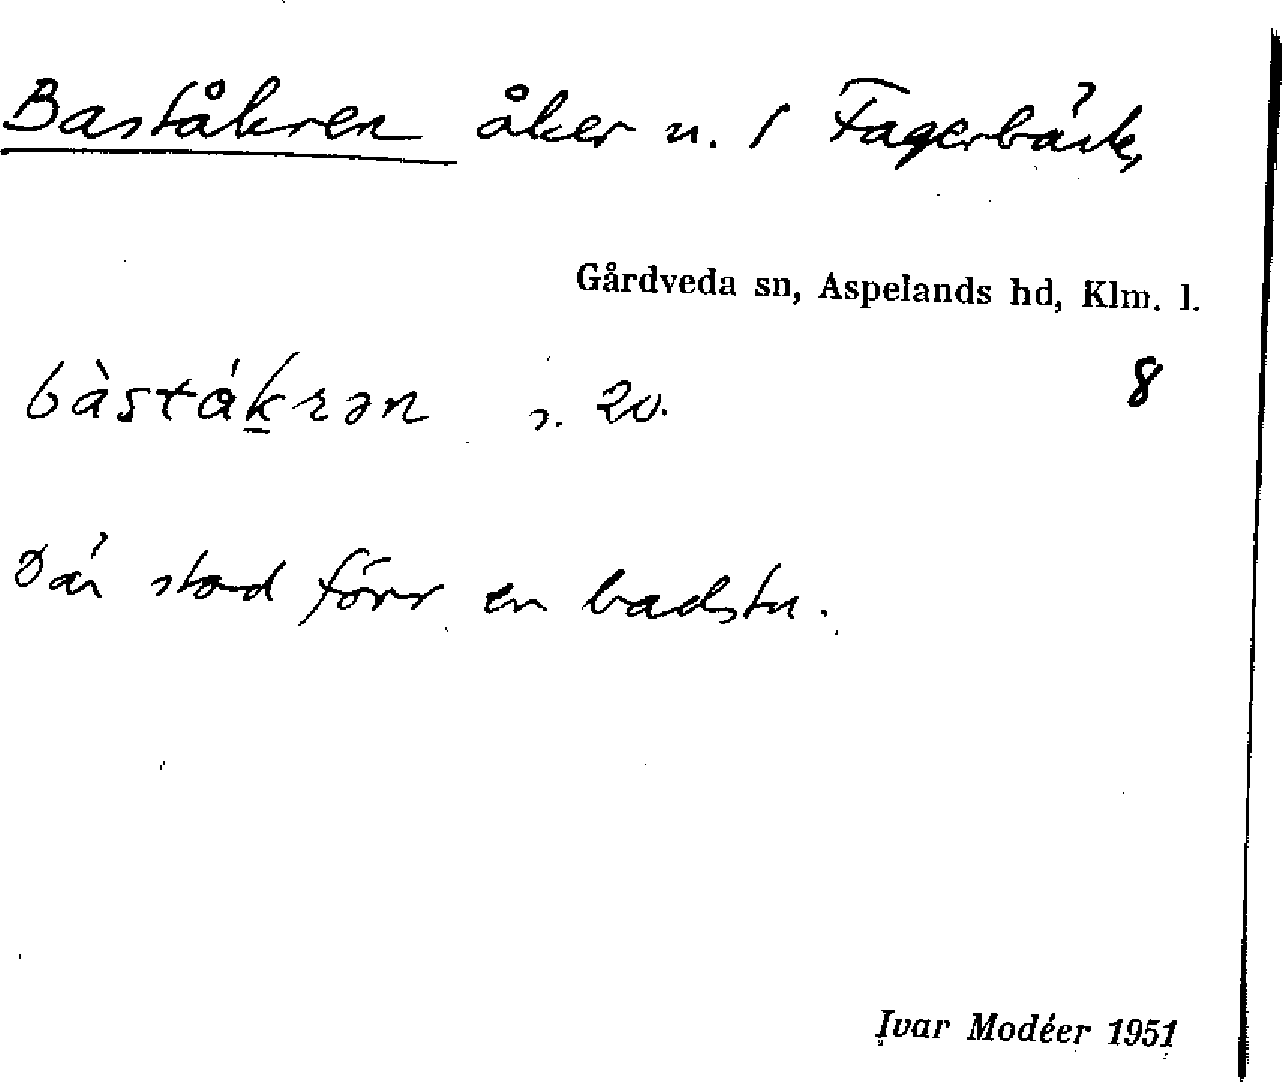 Baståkren åker u. 1 Fagerbäck,
Gårdveda sn, Aspelands hd, Klm. l.
bàstákrən 20. 8
Där stod förr en badstu.
Ivar Modéer 1951